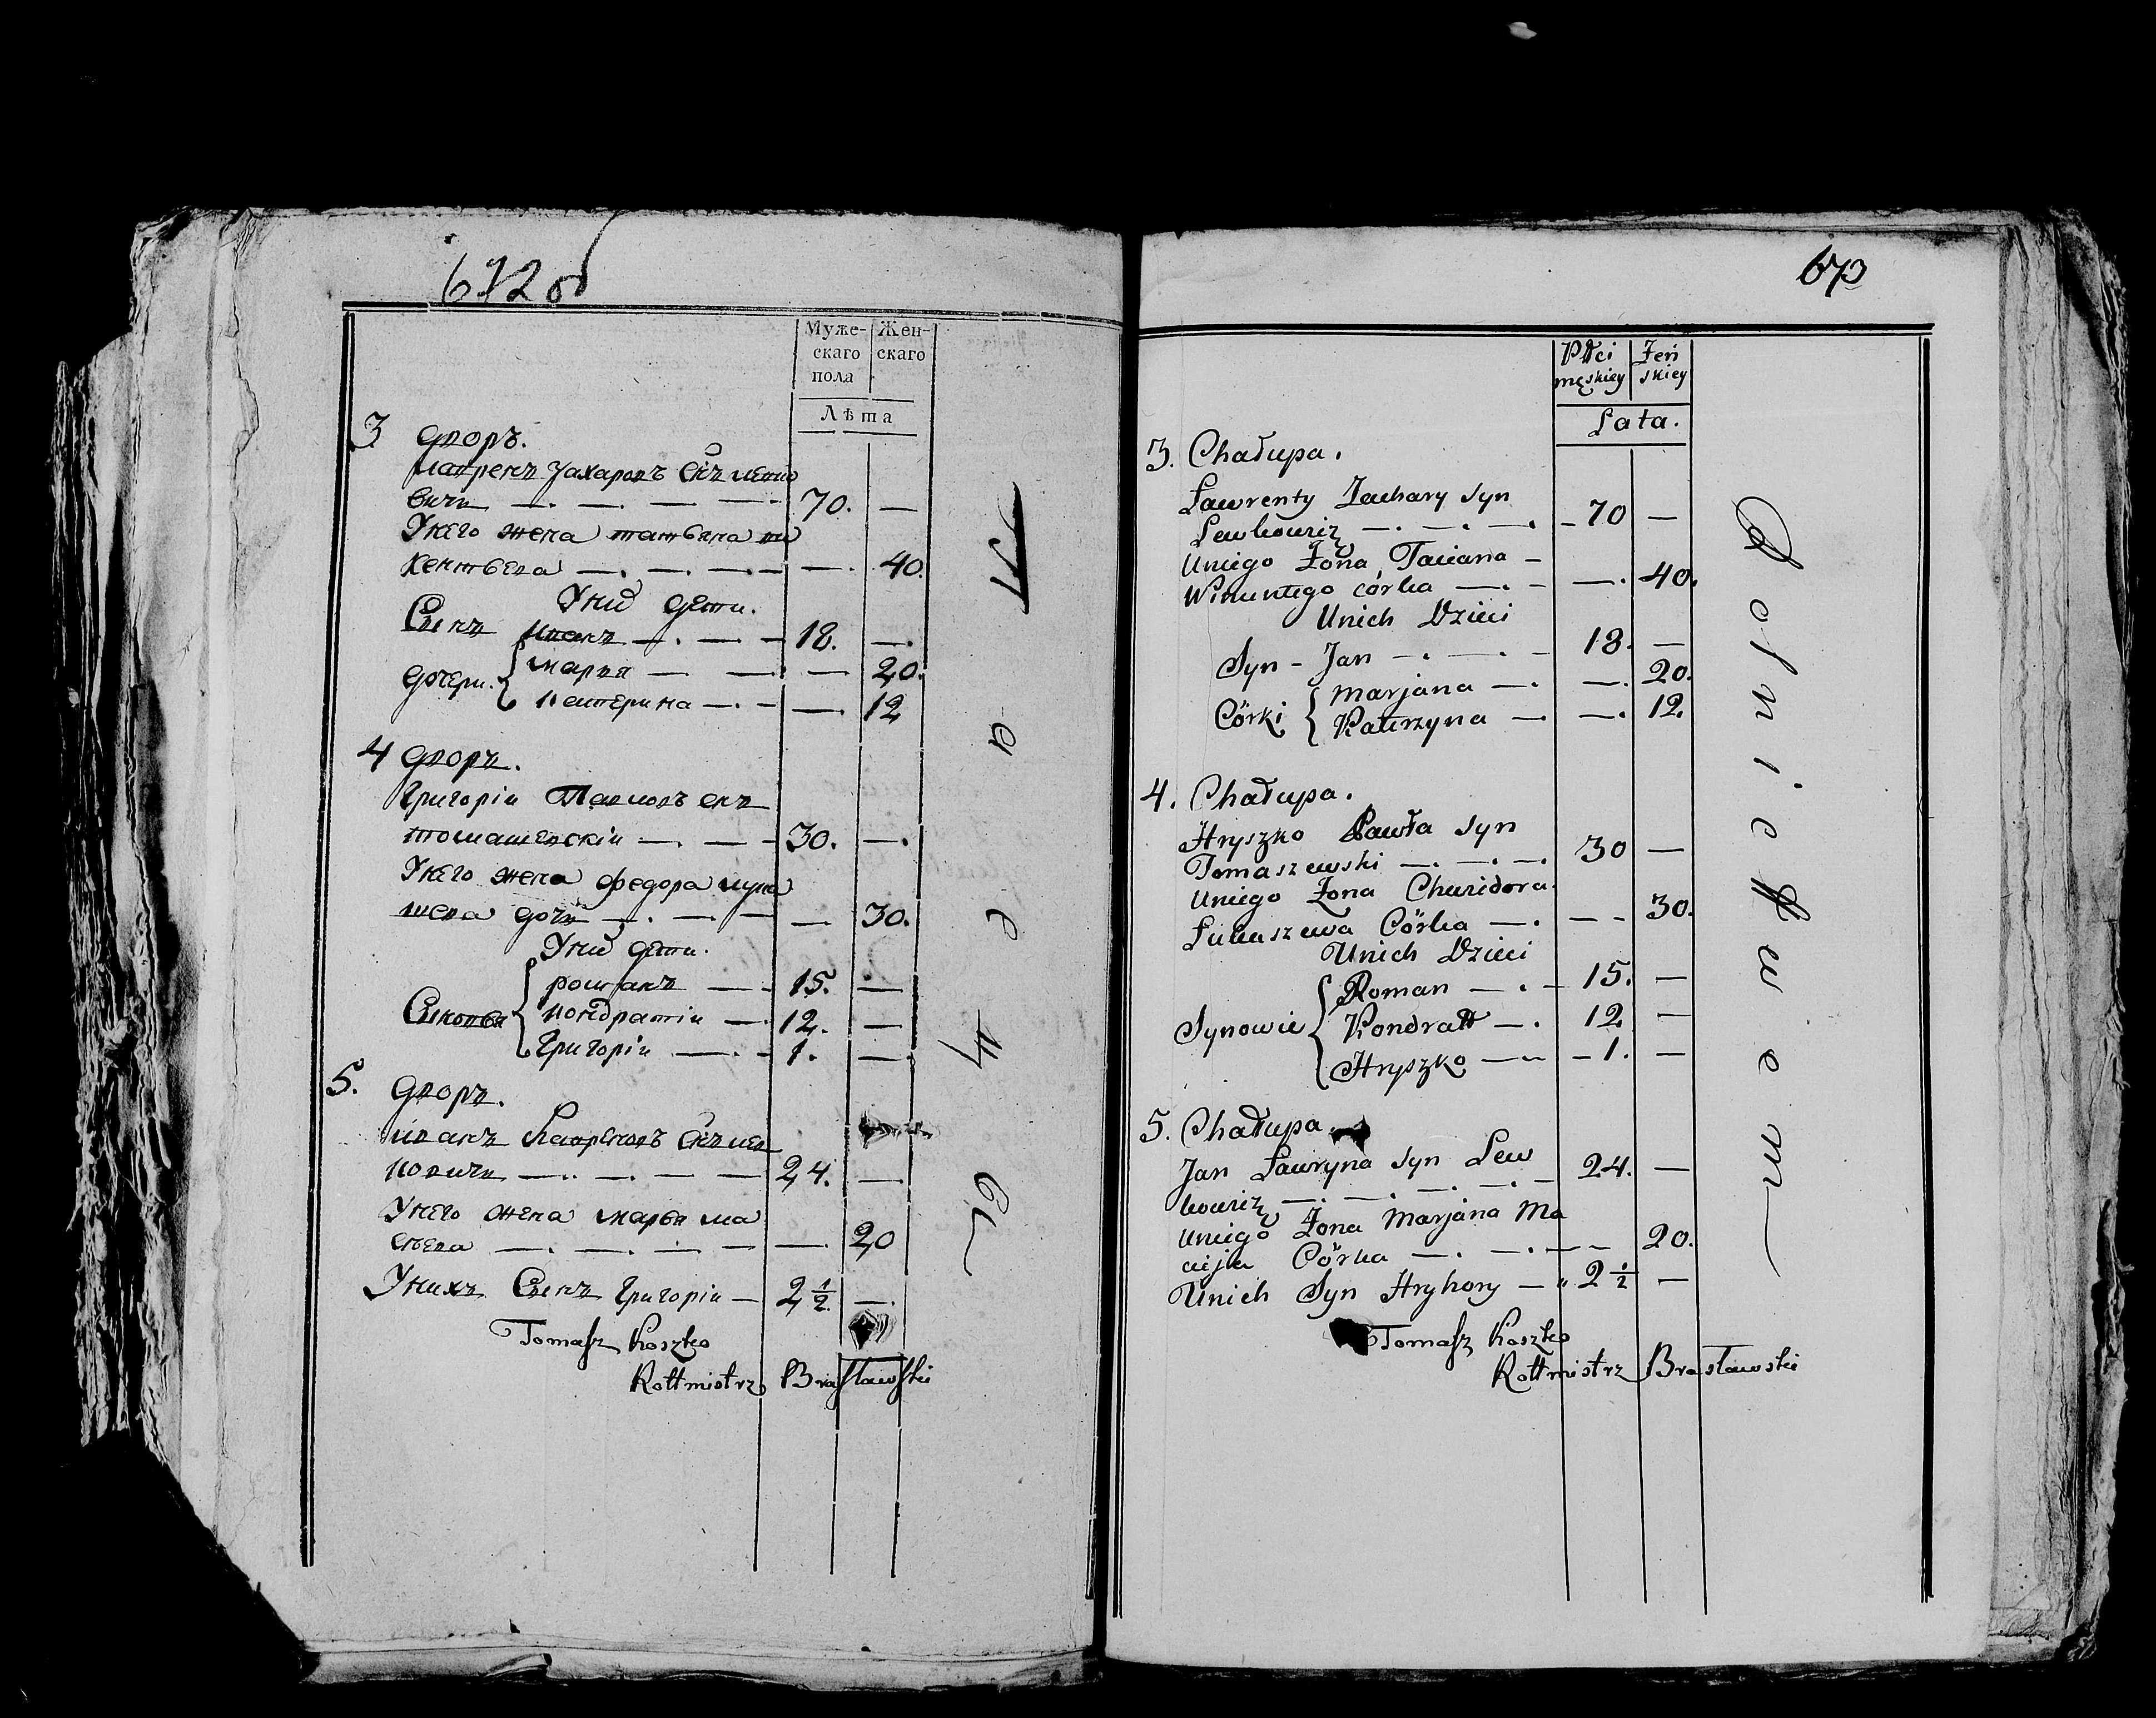 672 об
Муже-
скаго
пола
Жен-
скаго
Лѣта
3 дворъ.
Лавренъ Захаровъ Сынъ
вичъ — . — . — — 70. —
Унего жена татьяна ви
кентьева — . — . — — — . 40.
Уних дети.
Сынъ Иванъ — . — . — 18. — .
дочери. { марья — — . — 20.
катерина — . — — . 12
4 дворъ.
Григоріи Павловъ снъ
томашевскіи — . — — 30. — .
Унего жена федора лука
шева дочъ — . — . — — 30.
Уних дети.
Сыновья { романъ — — 15. —
кондратіи — . 12. —
Григоріи — . — 1. — .
5. дворъ.
иванъ Лавреновъ Сынъ лев
ковичъ — .. — . — — 24. — .
Унего жена марья ма
— . — . — . — — . 20
Унихъ Сынъ Григоріи — 2 1/2 — .
Tomasz Koszko
Rottmistrz Brasławski
673
Płci
męskiey
Żeń
skiey
Lata.
3. Chałupa.
Lawrenty Zachary Syn
Lewkowicz — . — . — . – 70 —
Uniego Żona Taciana –
Wincentego córka — . – — . 40.
Unich Dzieci
Syn – Jan — . — . – 18. —
Córki { Marjana — . — . 20.
Katarzyna — . — . 12.
4. Chałupa.
Hryszko Pawła Syn
Tomaszewski — . — . — . 30 —
Uniego Żona Chwidora
Lukaszewa Córka — . — – 30.
Unich Dzieci
Synowie { Roman — . – 15. —
Kondratt — . 12 —
Hryszko — – 1. —
5. Chałupa.
Jan Lawryna Syn Lew
kowicz — . — . — . — . – 24. —
Uniego Żona Marjana Ma
cieja Córka — . — . — – 20.
Unich Syn Hryhory — „ 2 1/2 —
Tomasz Koszko
Rottmistrz Brasławski